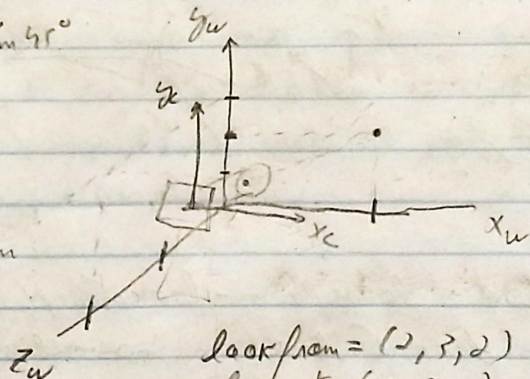 in 45°
y_w
y_c
x_c
x_w
z_w
lookfrom = (2, 3, 2)